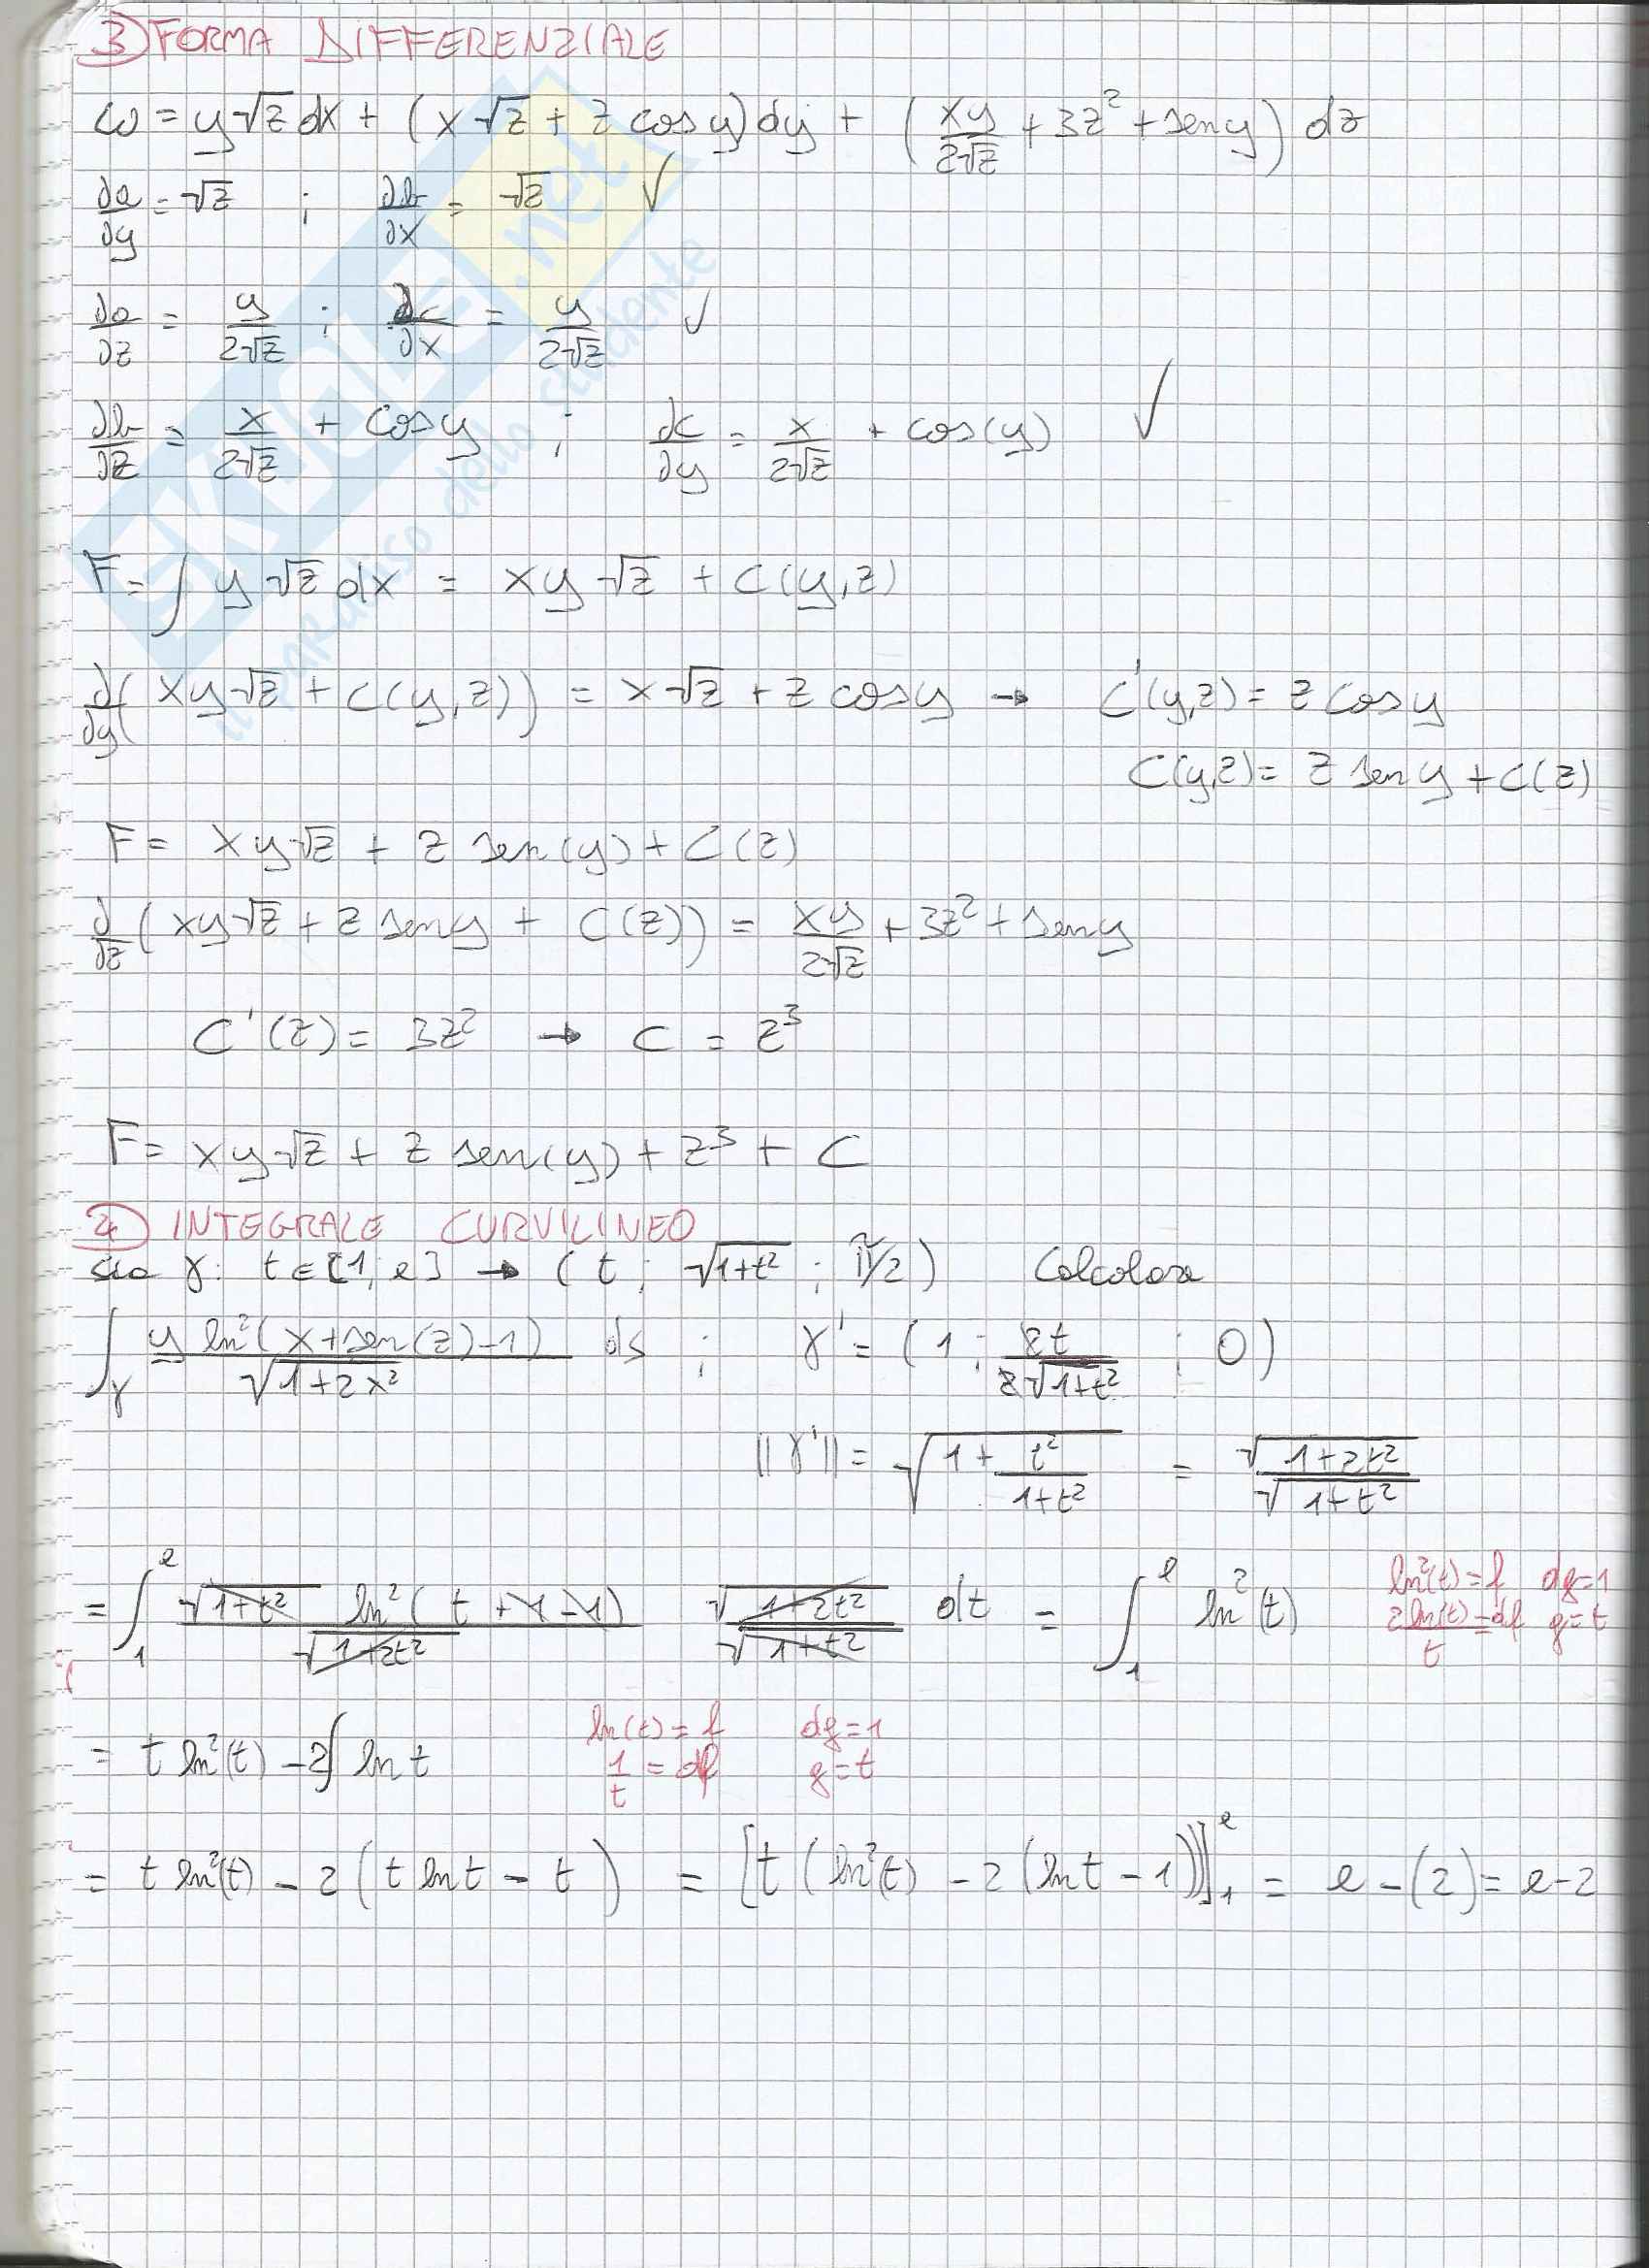 3) FORMA DIFFERENZIALE
ω = y√z dx + (x√z + z cosy)dy + (xy/2√z + 3z² + seny) dz
∂a/∂y = √z ; ∂b/∂x = √z ✓
∂a/∂z = y/2√z ; ∂c/∂x = y/2√z ✓
∂b/∂z = x/2√z + cosy ; ∂c/∂y = x/2√z + cos(y) ✓
F = ∫ y√z dx = xy√z + C(y,z)
∂/∂y (xy√z + C(y,z)) = x√z + z cosy → C'(y,z) = z cosy
C(y,z) = z seny + C(z)
F = xy√z + z sen(y) + C(z)
∂/∂z (xy√z + z seny + C(z)) = xy/2√z + 3z² + seny
C'(z) = 3z² → C = z³
F = xy√z + z sen(y) + z³ + C
4) INTEGRALE CURVILINEO
sia γ: t∈[1;e] → (t ; √1+t² ; π/2) Calcolare
∫γ y ln²(x+sen(z)-1)/√1+2x² ds ; γ' = (1 ; 2t/2√1+t² ; 0)
||γ'|| = √1 + t²/1+t² = √1+2t²/√1+t²
= ∫₁ᵉ √1+t² ln²(t+1-1)/√1+2t² √1+2t²/√1+t² dt = ∫₁ᵉ ln²(t) ln²(t)=f dg=1
2ln(t)/t = df g=t
= t ln²(t) - 2∫ ln t ln(t)=f dg=1
1/t = df g=t
= t ln²(t) - 2(t ln t - t) = [t(ln²(t) - 2(ln t - 1))]₁ᵉ = e-(2) = e-2
SKUOLA.net
il paradiso dello studente